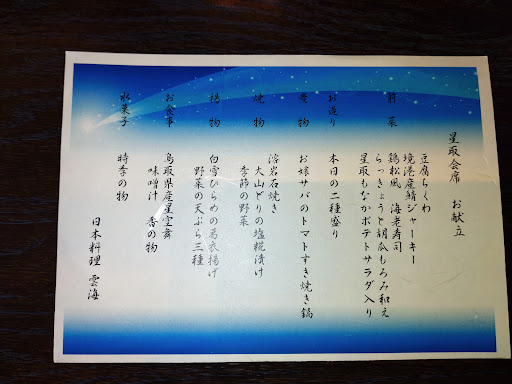 星取会席　お献立
前菜
豆腐ちくわ
境港産鯖ジャーキー
鶏松風　海老寿司
らっきょうと胡瓜もろみ和え
星取もなかポテトサラダ入り
お造り
本日の二種盛り
煮物
お嬢サバのトマトすき焼き鍋
焼物
溶岩石焼き
大山どりの塩糀漬け
季節の野菜
揚物
白雪ひらめの葛衣揚げ
野菜の天ぷら三種
お食事
鳥取県産星空舞
味噌汁　香の物
水菓子
時季の物
日本料理 雲海